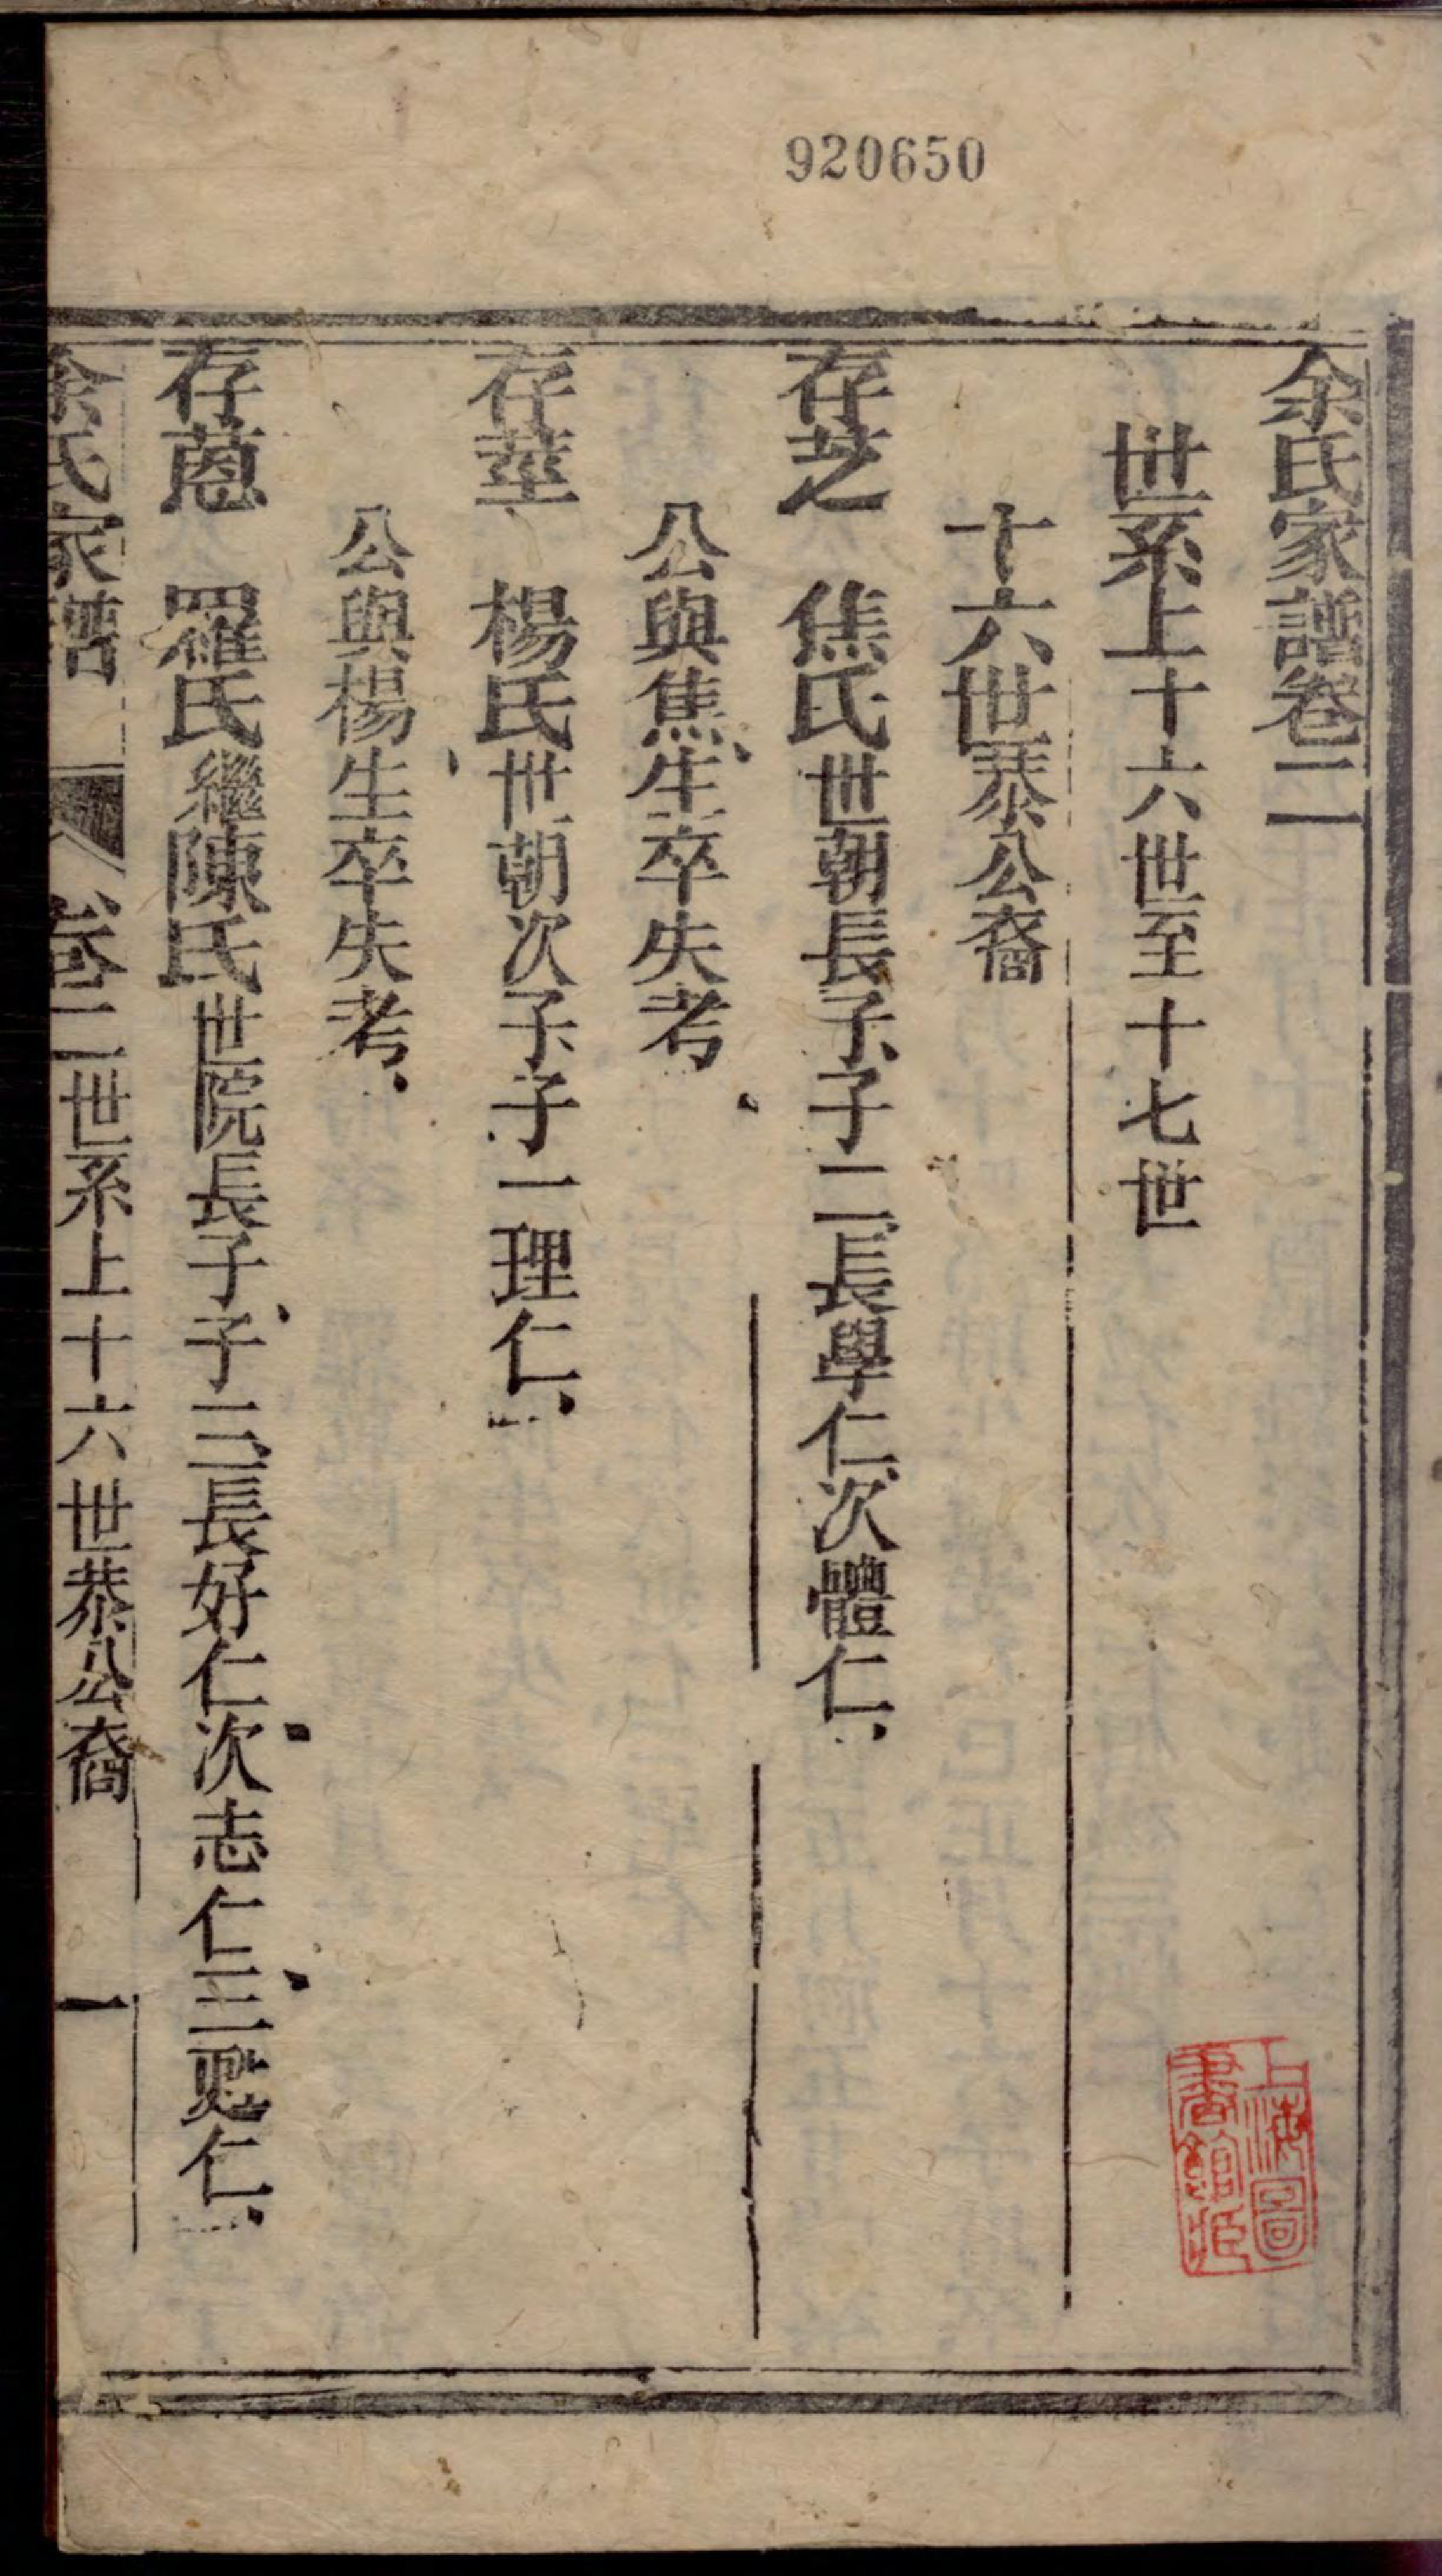 920650
余氏家譜卷二
世系上十六世至十七世
十六世恭公裔
存芝 焦氏世朝長子、子二、長學仁、次體仁、
公與焦、生卒失考
存莖 楊氏世朝次子子一理仁、
公與楊生卒失考、
存蒽 羅氏繼陳氏世院長子、子三、長好仁、次志仁、三甦仁、
余氏家譜 卷二世系上十六世恭公裔 一
上海圖書館藏